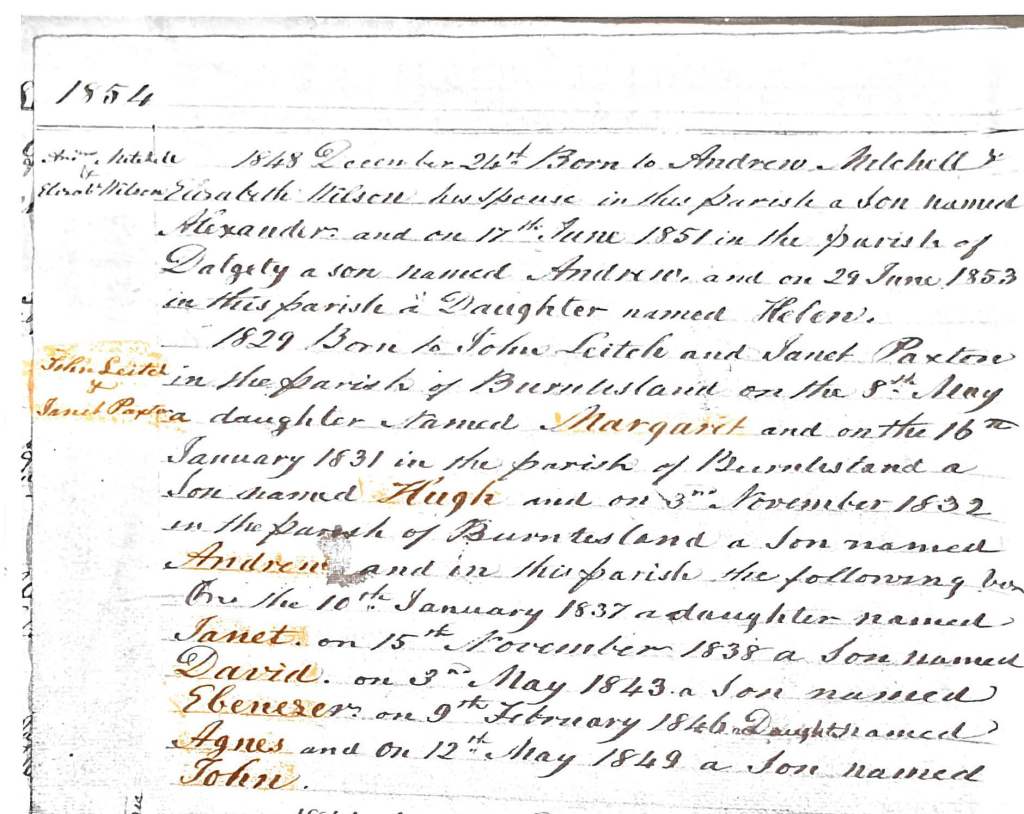 1854
Andw. Mitchell
&
Elizabt Wilson
1848 December 24th Born to Andrew Mitchell &
Elizabeth Wilson his Spouse in this parish a Son named
Alexander. and on 17th June 1851 in the parish of
Dalgety a son named Andrew, and on 29 June 1853
in this parish a Daughter named Helen.
John Leitch
&
Janet Paxton
1829 Born to John Leitch and Janet Paxton
in the parish of Burntisland on the 8th May
a daughter Named Margaret and on the 16th
January 1831 in the parish of Burntisland a
Son named Hugh and on 3rd November 1832
in the parish of Burntisland a Son named
Andrew and in this parish the following
On the 10th January 1837 a daughter named
Janet. on 15th November 1838 a Son named
David. on 3rd May 1843 a Son named
Ebenezer. on 9th February 1846 a Daught named
Agnes and on 12th May 1849 a Son named
John.